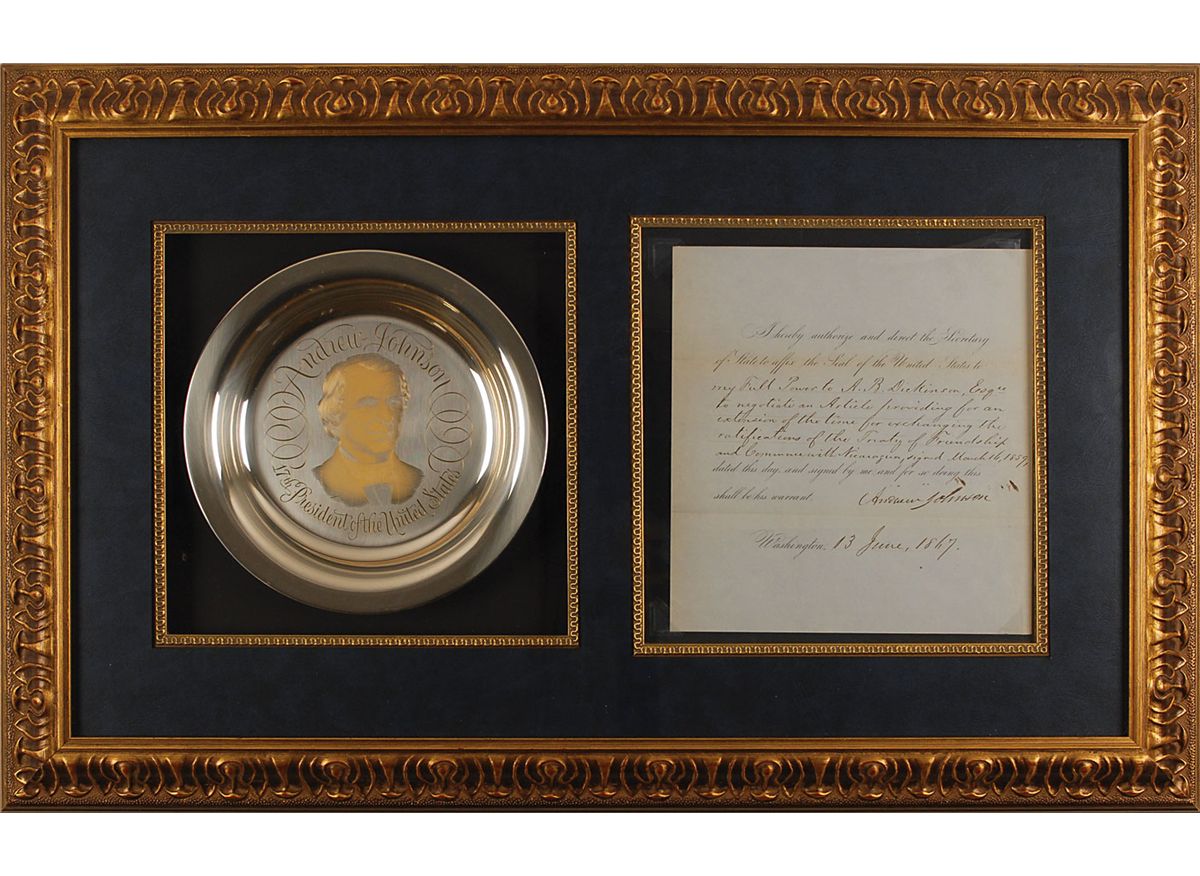 Andrew Johnson
17th President of the United States
I hereby authorize and direct the Secretary
of State to affix the Seal of the United States to
my Full Power to A. B. Dickinson, Esqre
to negotiate an Article providing for an
extension of the time for exchanging the
ratifications of the Treaty of Friendship
and Commerce with Nicaragua, signed March 16, 1859,
dated this day, and signed by me and for so doing this
shall be his warrant.
Andrew Johnson
Washington, 13 June, 1867.